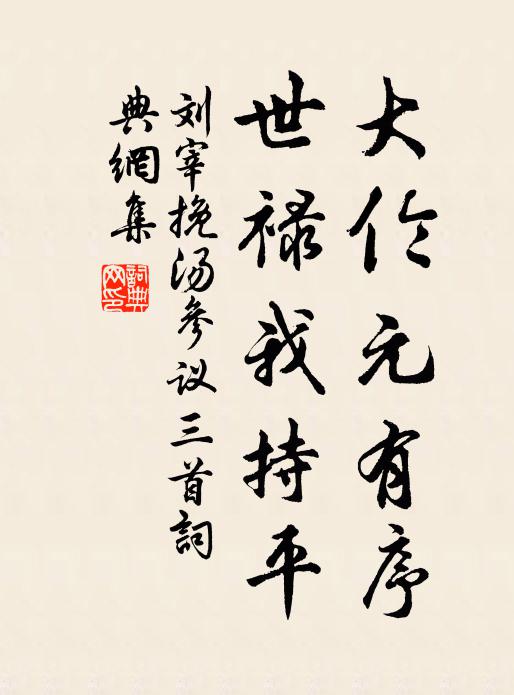 大伦元有序
世禄我持平
刘宰挽汤参议三首詞
典網集
詞典网印